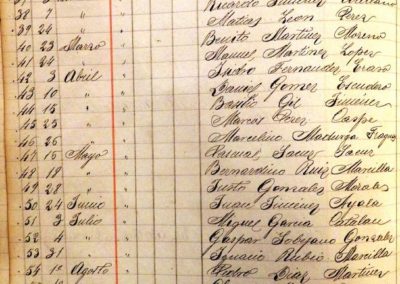 Ricardo Jimenez
38 7 " " Matias Leon Perez
39 24 " "
40 23 Marzo " Benito Martinez Moreno
41 24 " " Manuel Martinez Lopez
42 3 Abril " Isidro Fernandez
43 10 " " Gomez Escudero
44 15 " " Basilio Gil Jimenez
45 25 " " Marcos Perez Caspe
46 26 " " Marcelino
47 15 Mayo " Pascual Saenz Saenz
48 18 " " Bernardino Ruiz Mancilla
49 28 " " Justo Gonzalez Morales
50 24 Junio " Juan Jimenez Ayala
51 3 Julio " Miguel Garcia Catalan
52 4 " " Gaspar Sobejano Gonzalez
53 31 " " Ignacio Rubio Mancilla
54 1º Agosto " Pedro Diaz Martinez